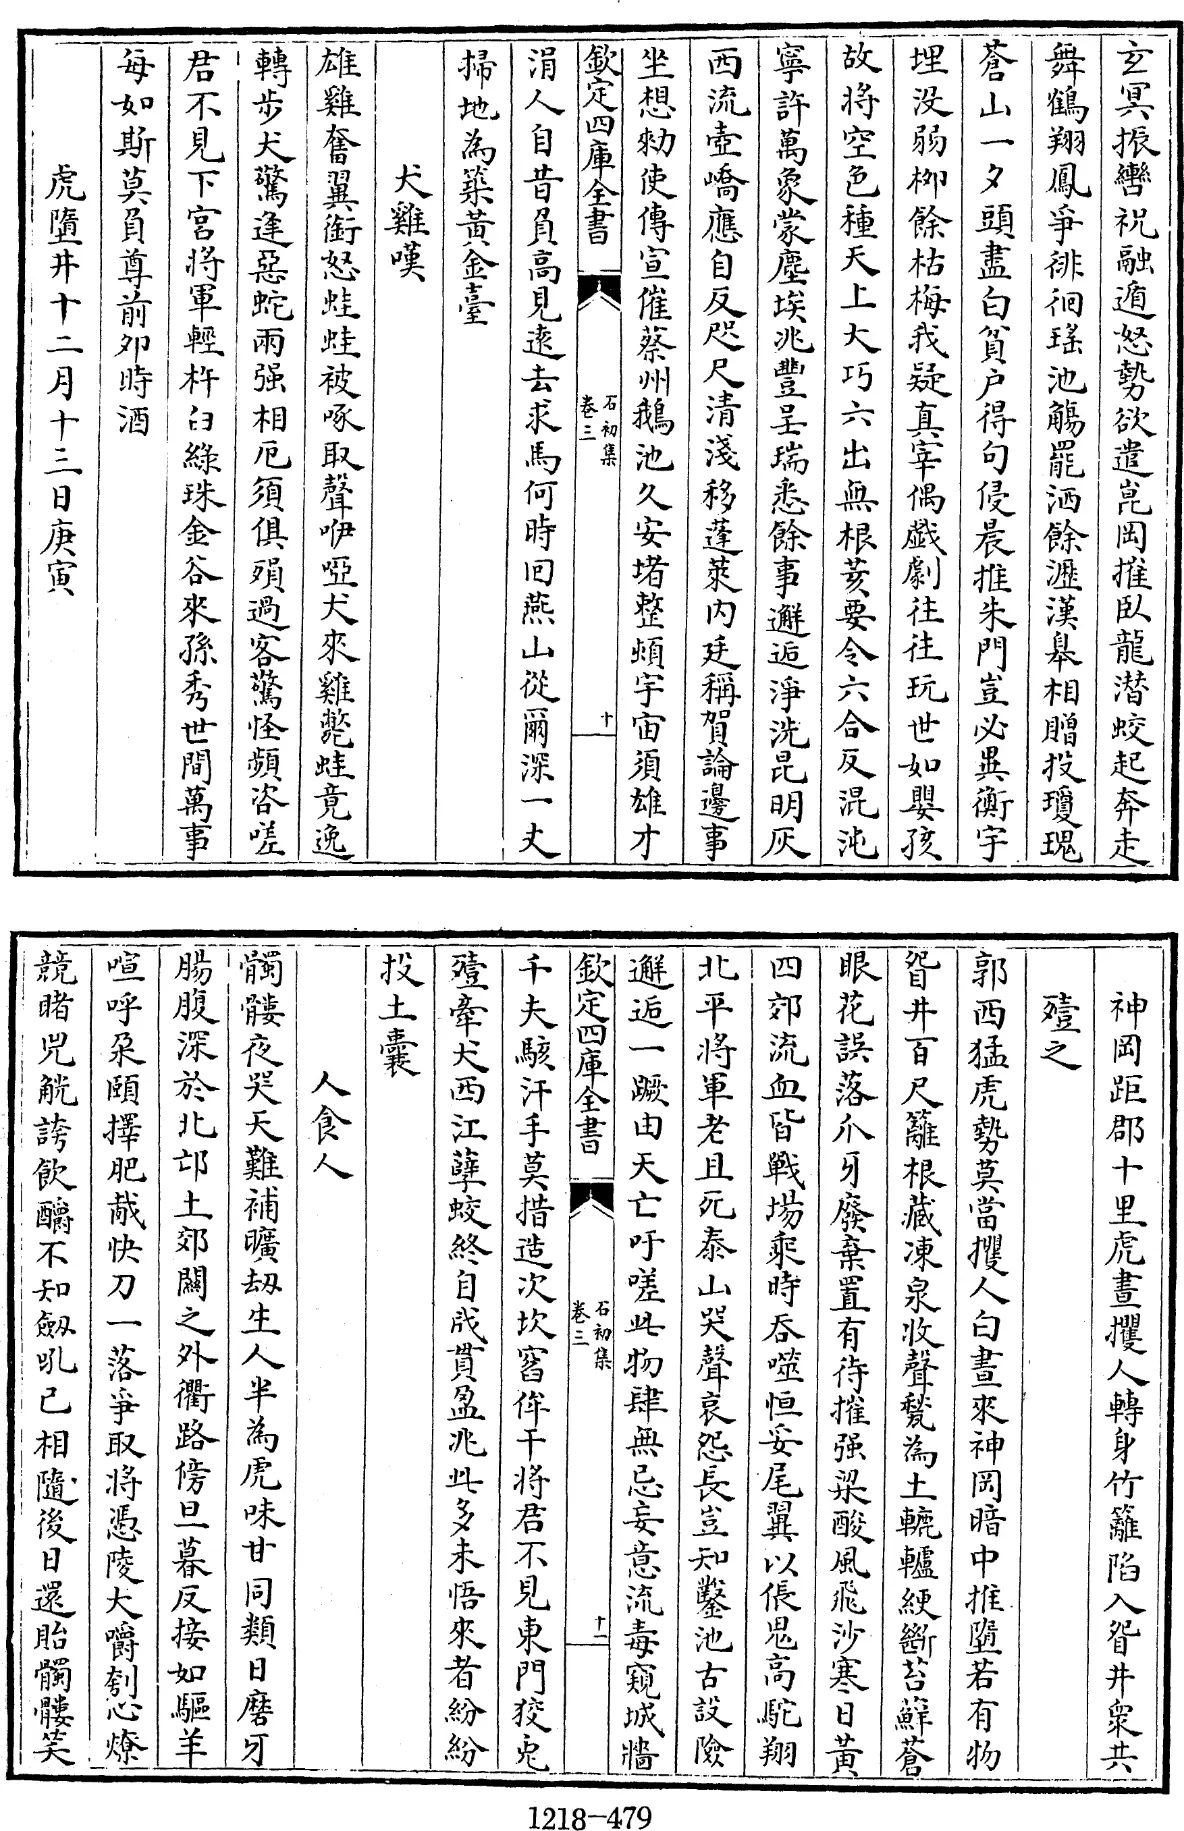 玄冥振轡祝融遁怒勢欲遣崑岡摧臥龍潛蛟起奔走
舞鶴翔鳳爭徘徊瑤池觴罷洒餘瀝漢臯相贈投瓊瑰
蒼山一夕頭盡白貧户得句侵晨推朱門豈必異衡宇
埋没弱栁餘枯梅我疑真宰偶戲劇往往玩世如嬰孩
故將空色種天上大巧六出無根荄要令六合反混沌
寧許萬象蒙塵埃兆豐呈瑞悉餘事邂逅淨洗昆明灰
西流壺嶠應自反咫尺清淺移蓬萊内廷稱賀論邊事
坐想勑使傳宣催蔡州鵝池久安堵整頓宇宙須雄才
欽定四庫全書
石初集
卷三
十
涓人自昔負高見遠去求馬何時回燕山從爾深一丈
掃地為築黃金臺
犬雞嘆
雄雞奮翼銜怒蛙蛙被啄取聲咿啞犬來雞斃蛙竟逸
轉歩犬驚逢惡蛇兩强相厄須俱殞過客驚怪頻咨嗟
君不見下宮將軍輕杵臼緑珠金谷來孫秀世間萬事
每如斯莫負尊前夘時酒
虎墮井十二月十三日庚寅
神岡距郡十里虎晝攫人轉身竹籬陷入眢井衆共
殪之
郭西猛虎勢莫當攫人白晝來神岡暗中推墮若有物
眢井百尺籬根藏凍泉收聲甃為土轆轤綆斷苔蘚蒼
眼花誤落爪牙廢棄置有待摧强梁酸風飛沙寒日黃
四郊流血皆戰場乘時吞噬恒妥尾翼以倀鬼高駝翔
北平將軍老且死泰山哭聲哀怨長豈知鑿池古設險
邂逅一蹶由天亡吁嗟此物肆無忌妄意流毒窺城牆
欽定四庫全書
石初集
卷三
十一
千夫駭汗手莫措造次坎窞侔干將君不見東門狡兎
殪牽犬西江孽蛟終自戕貫盈兆此多未悟來者紛紛
投土囊
人食人
髑髏夜哭天難補曠刼生人半為虎味甘同類日磨牙
腸腹深於北邙土郊關之外衢路傍旦暮反接如驅羊
喧呼朶頤擇肥胾快刀一落爭取將憑陵大嚼刳心燎
競睹兕觥誇飲釂不知劔吼已相隨後日還貽髑髏笑
1218-479